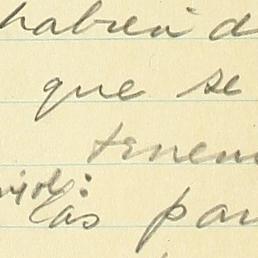 habrá d
que se
tenem
las par